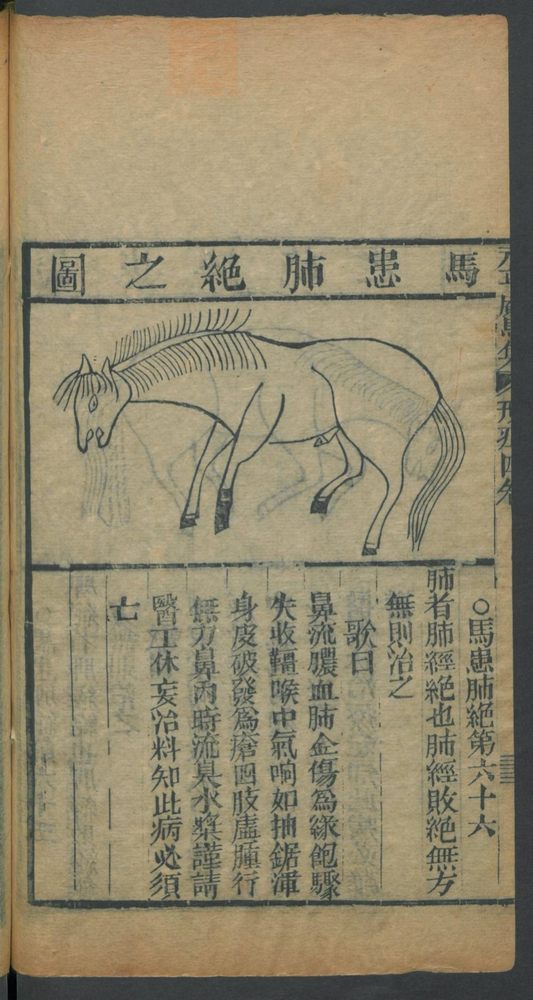 馬患肺絶之圖
○馬患肺絶第六十六
肺者肺經絶也肺經敗絶無方
無則治之
歌曰
鼻流膿血肺金傷爲緣飽驟
失收韁喉中氣响如抽鋸渾
身皮破發爲瘡四肢虛腫行
無力鼻內時流臭水漿謹請
醫工休妄治料知此病必須
亡